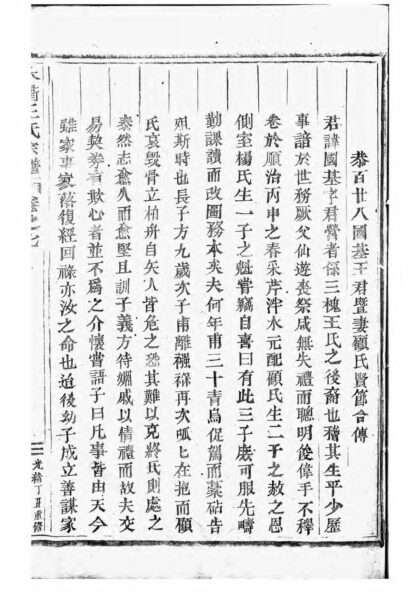 恭百廿八國基王君暨妻顧氏賢節合傳
君諱國基字君營者深三槐王氏之後裔也稽其生平少歷
事諳於世務厥父仙遊喪祭咸無失禮而聰明俊偉手不釋
卷於順治丙申之春采芹泮水元配顧氏生二子之赦之恩
側室楊氏生一子之魁嘗竊自喜曰有此三子庶可服先疇
勤課讀而改圖務本矣夫何年甫三十青烏促駕而藁砧告
殂斯時也長子方九歲次子甫離襁褓再次呱匕在抱而顧
氏哀毀骨立柏舟自矢人皆危之恐其難以克終氏則處之
泰然志愈久而愈堅且訓子義方待婣戚以情禮而故夫交
易契券有欺心者並不為之介懷嘗語子曰凡事皆由天今
雖家事寥落復經回祿亦汝之命也迨後幼子成立善謀家
王氏宗譜
光緒丁丑重修